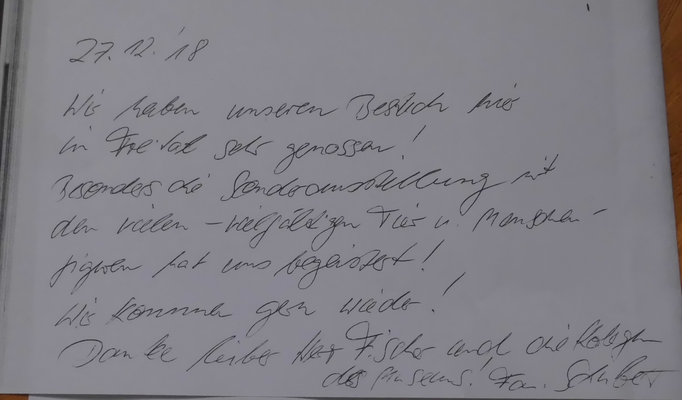 27.12.'18
Wir haben unseren Besuch hier
in Freital sehr genossen!
Besonders die Sonderausstellung mit
den vielen - vielfältigen Tier u. Menschen-
figuren hat uns begeistert!
Wir kommen gern wieder!
Danke lieber Herr Fischer und die Kollegen
des Museums! Fam.